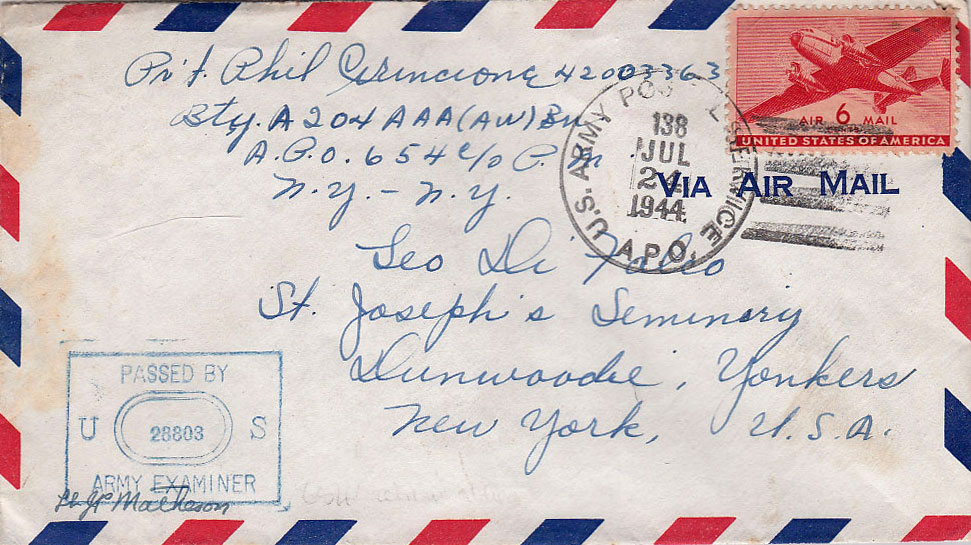 Pvt. Phil Cirincione 42003363
Bty. A 204 AAA (AW) Bn
A.P.O. 654 c/o P.M.
N.Y. - N.Y.
AIR 6 MAIL
UNITED STATES OF AMERICA
U.S. ARMY POSTAL SERVICE
138
JUL
24
1944
A.P.O.
VIA AIR MAIL
Leo Di
St. Joseph's Seminary
Dunwoodie, Yonkers
New York, U.S.A.
PASSED BY
U 28803 S
ARMY EXAMINER
Matheson